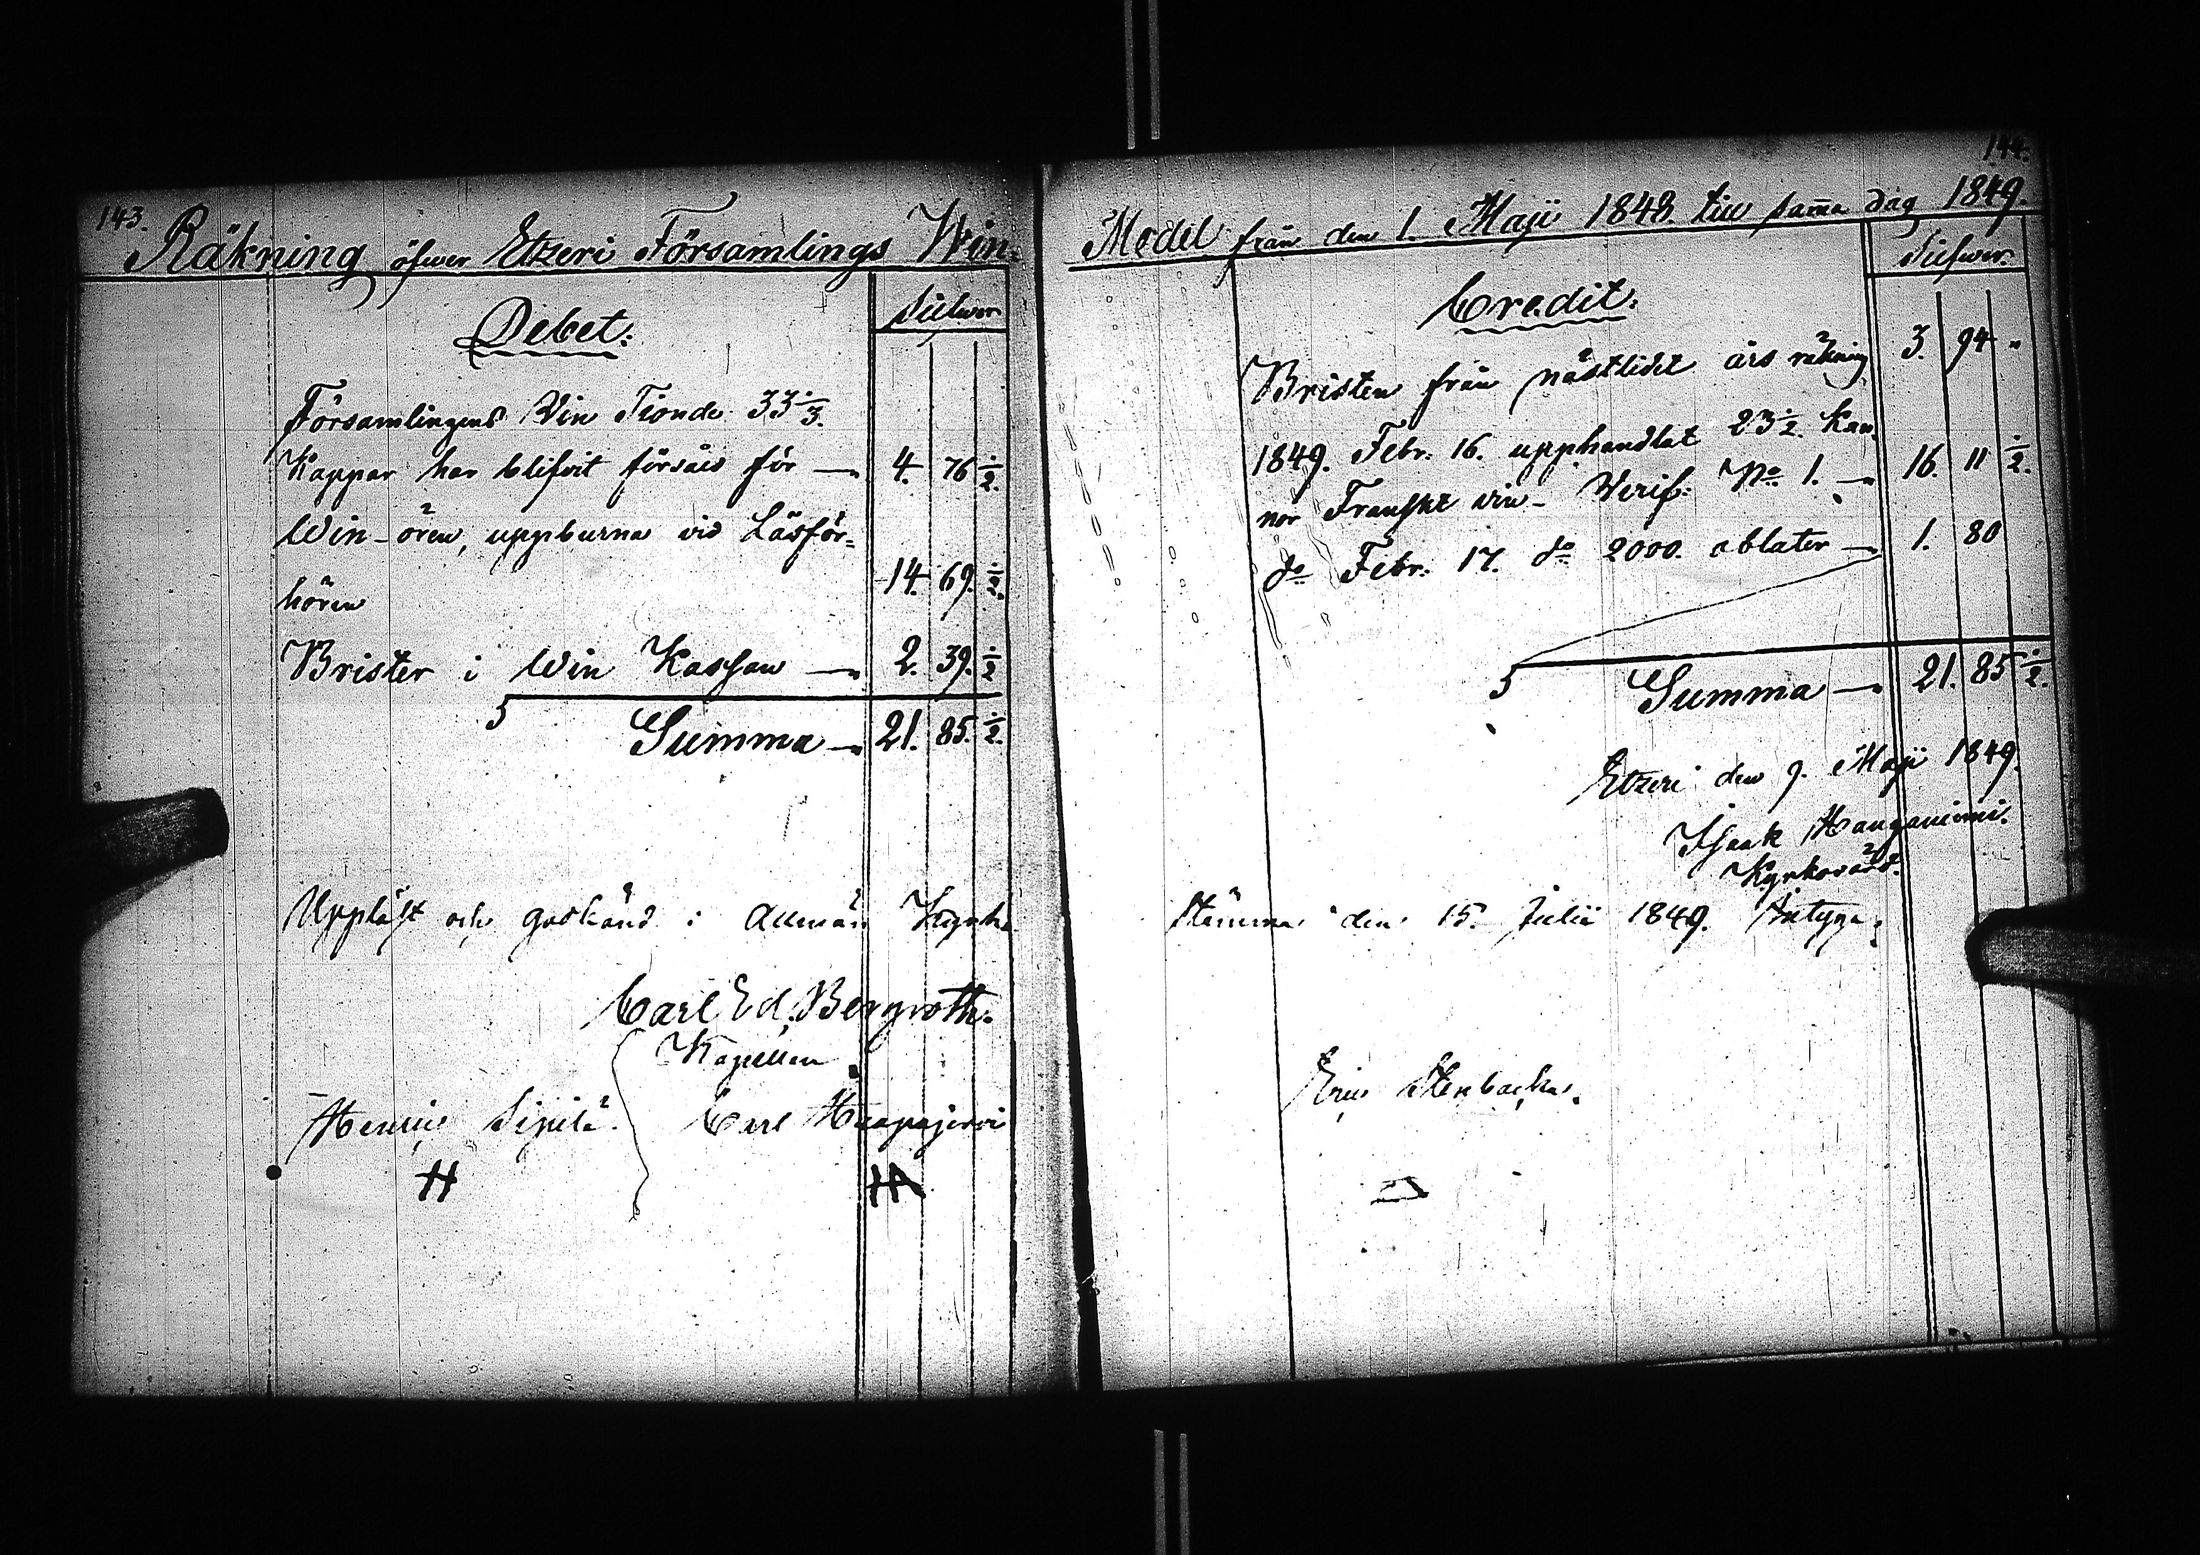 143.
Räkning öfwer Etzeri Församlings Win-
Debet:
Silfwer
Församlingens Win Tionde 33 1/3.
Kappar har blifvit försåld för — 4. 76 1/2.
Win-ören, uppburna vid Läsför=
hören 14. 69. 1/2.
Brister i Win Kassan — 2. 39. 1/2
Summa — 21. 85. 1/2.
Uppläst och godkänd i Allmän Kyrko
Carl Ed. Bergroth.
Kapellan
Henric Sipilä. Carl Haapajervi
144.
Medel från den 1. Maji 1848. till samma dag 1849.
Silfwer.
Credit:
Bristen från nästlidet års räkning 3. 94 "
1849. Febr. 16. upphandlat 23 1/2. Kan=
nor Franskt vin - Verif: No 1. — 16. 11 1/2.
do Febr. 17. do 2000. oblater — 1. 80
Summa — 21. 85 1/2.
Etzeri den 9. Maji 1849.
Isaak Hanganiemi.
Kyrkovärd.
stämma den 15. Julii 1849. Intyga;
Eric Stenbacka.